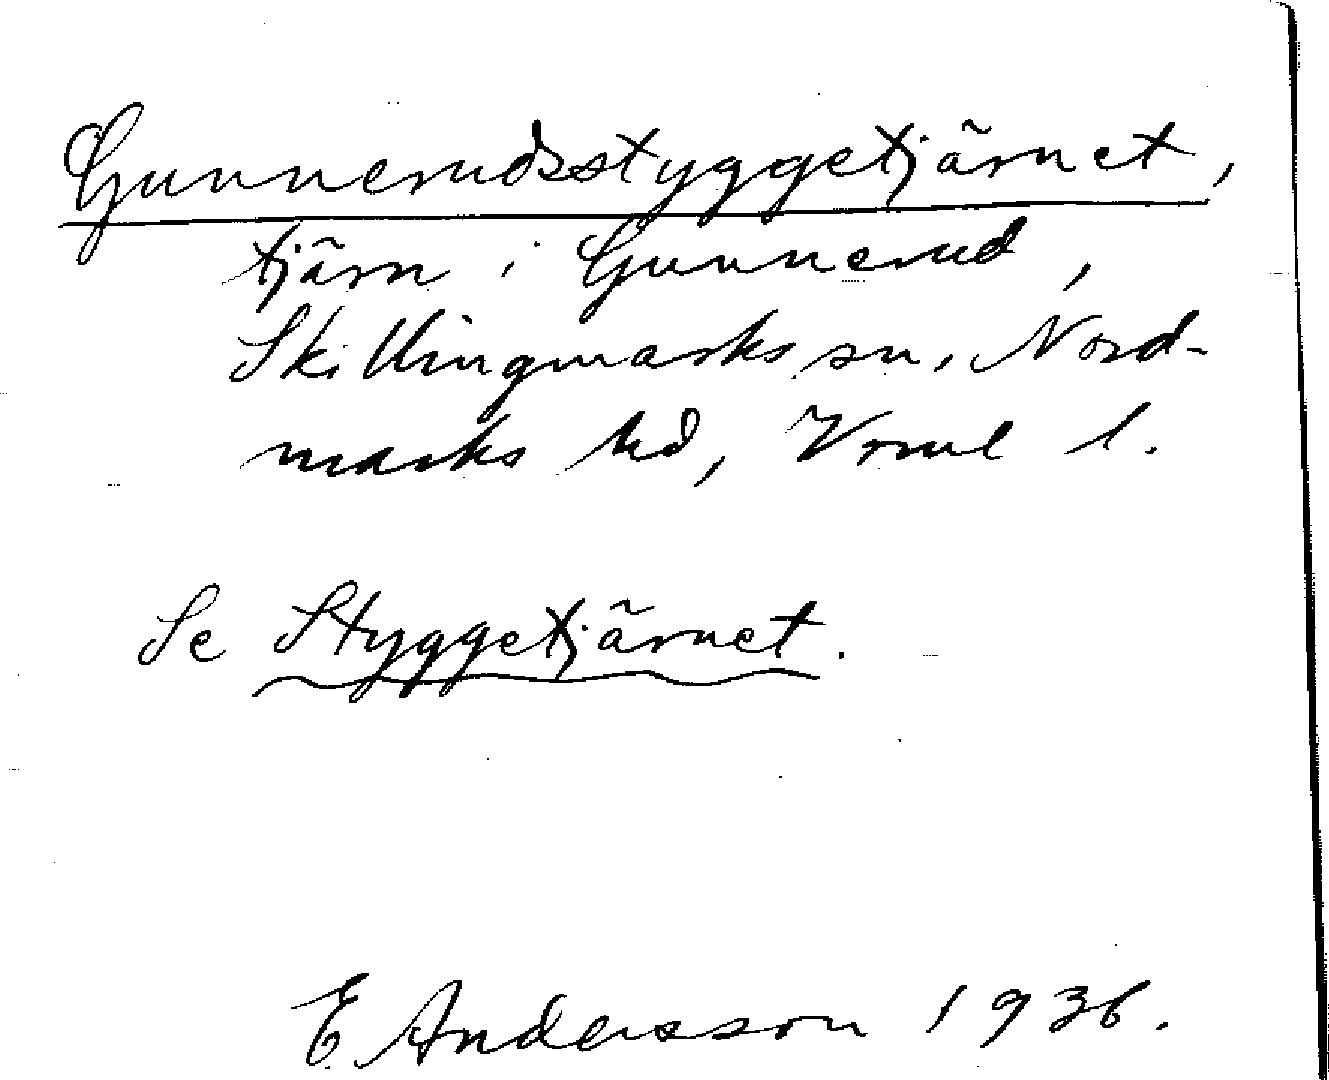 Gunnerudsstyggetjärnet,
tjärn i Gunnerud,
Skillingmarks sn, Nord-
marks hd, Vrml l.
Se Styggetjärnet.
E. Andersson 1936.